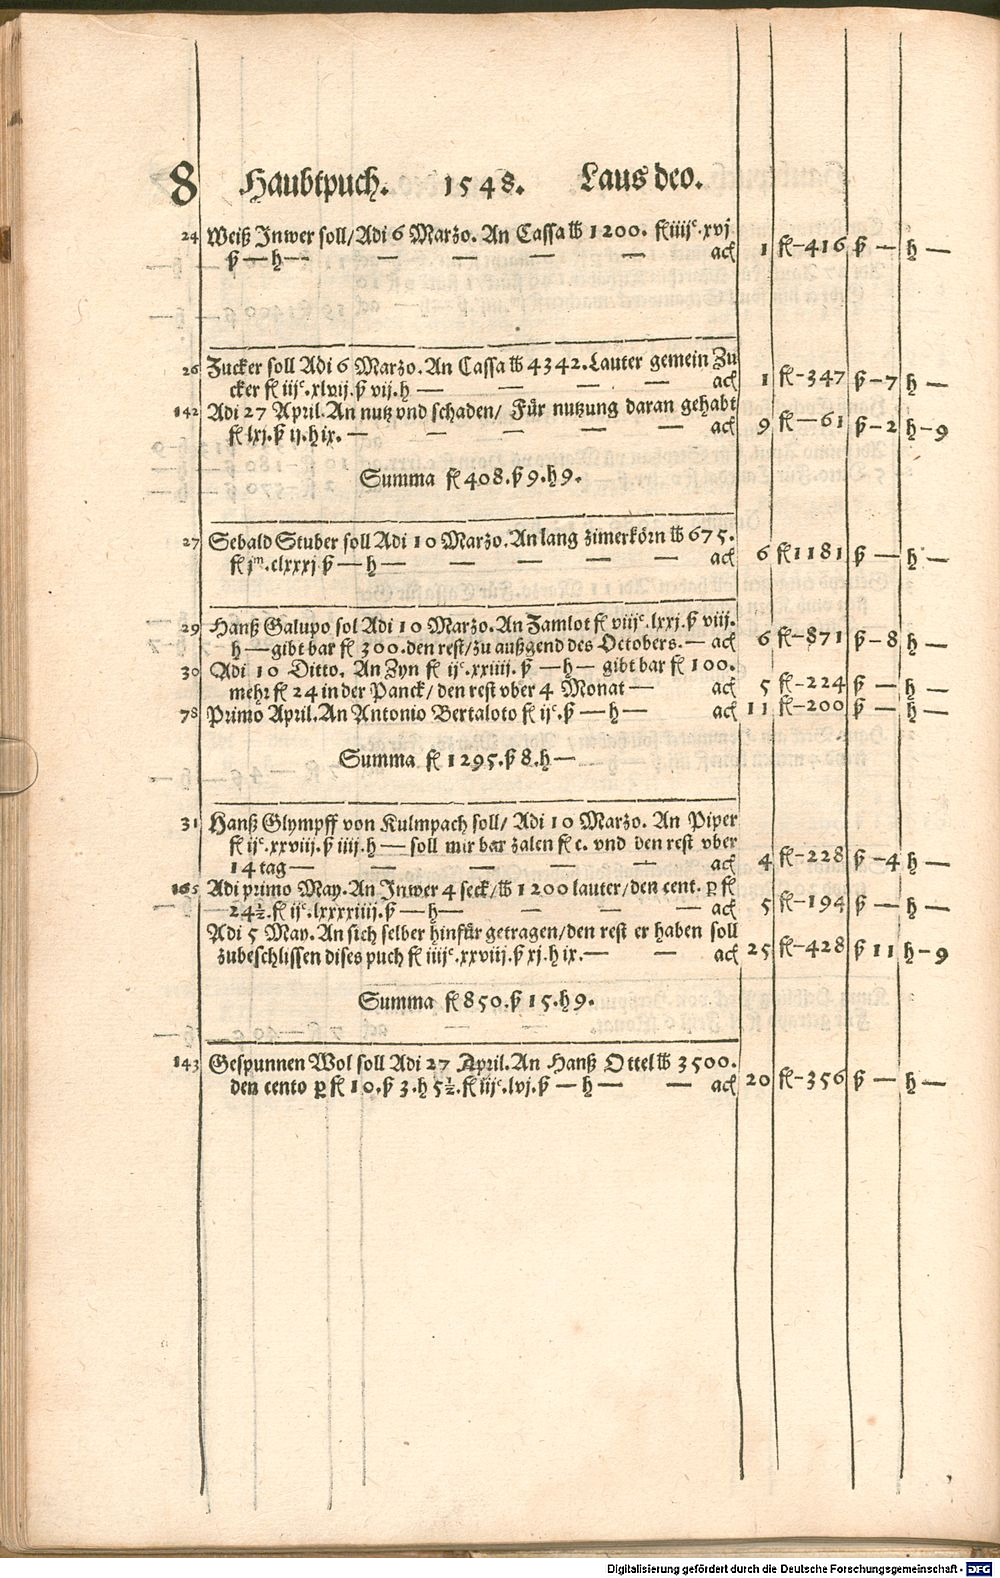 8 Haubtpuch. 1548. Laus deo.
24 Weiß Inwer soll/Adi 6 Marzo. An Cassa ℔ 1200. fl iiijc.xvj
ß — h — — — — — ac 1 fl–416 ß — h —
26 Zucker soll Adi 6 Marzo. An Cassa ℔ 4342. Lauter gemein Zu
cker fl iijc.xlvij.ß vij.h — — — — ac 1 fl–347 ß–7 h —
142 Adi 27 April. An nutz vnd schaden/ Für nutzung daran gehabt
fl lxj.ß ij.h ix. — — — — — ac 9 fl–61 ß–2 h–9
Summa fl 408.ß 9.h 9.
27 Sebald Stuber soll Adi 10 Marzo. An lang zimerkörn ℔ 675.
fl jm.clxxxj ß — h — — — — — ac 6 fl 1181 ß — h —
29 Hanß Galupo sol Adi 10 Marzo. An Zamlot fl viijc.lxxj.ß viij.
h — gibt bar fl 300. den rest/zu außgend des Octobers. — ac 6 fl–871 ß–8 h —
30 Adi 10 Ditto. An Zyn fl ijc.xxiiij. ß — h — gibt bar fl 100.
mehr fl 24 in der Panck/ den rest vber 4 Monat — ac 5 fl–224 ß — h —
78 Primo April. An Antonio Bertaloto fl ijc.ß — h — ac 11 fl–200 ß — h —
Summa fl 1295.ß 8.h —
31 Hanß Glympff von Kulmpach soll/ Adi 10 Marzo. An Piper
fl ijc.xxviij.ß iiij.h — soll mir bar zalen fl c. vnd den rest vber
14 tag — — — — — — ac 4 fl–228 ß–4 h —
165 Adi primo May. An Inwer 4 seck/℔ 1200 lauter/den cent. ꝑ fl
24½.fl ijc.lxxxxiiij.ß — h — — — — ac 5 fl–194 ß — h —
Adi 5 May. An sich selber hinfür getragen/den rest er haben soll
zubeschlissen dises puch fl iiijc.xxviij.ß xj.h ix. — — ac 25 fl–428 ß 11 h–9
Summa fl 850.ß 15.h 9.
143 Gespunnen Wol soll Adi 27 April. An Hanß Ottel ℔ 3500.
den cento ꝑ fl 10.ß 3.h 5½.fl iijc.lvj.ß — h — — ac 20 fl–356 ß — h —
Digitalisierung gefördert durch die Deutsche Forschungsgemeinschaft - DFG